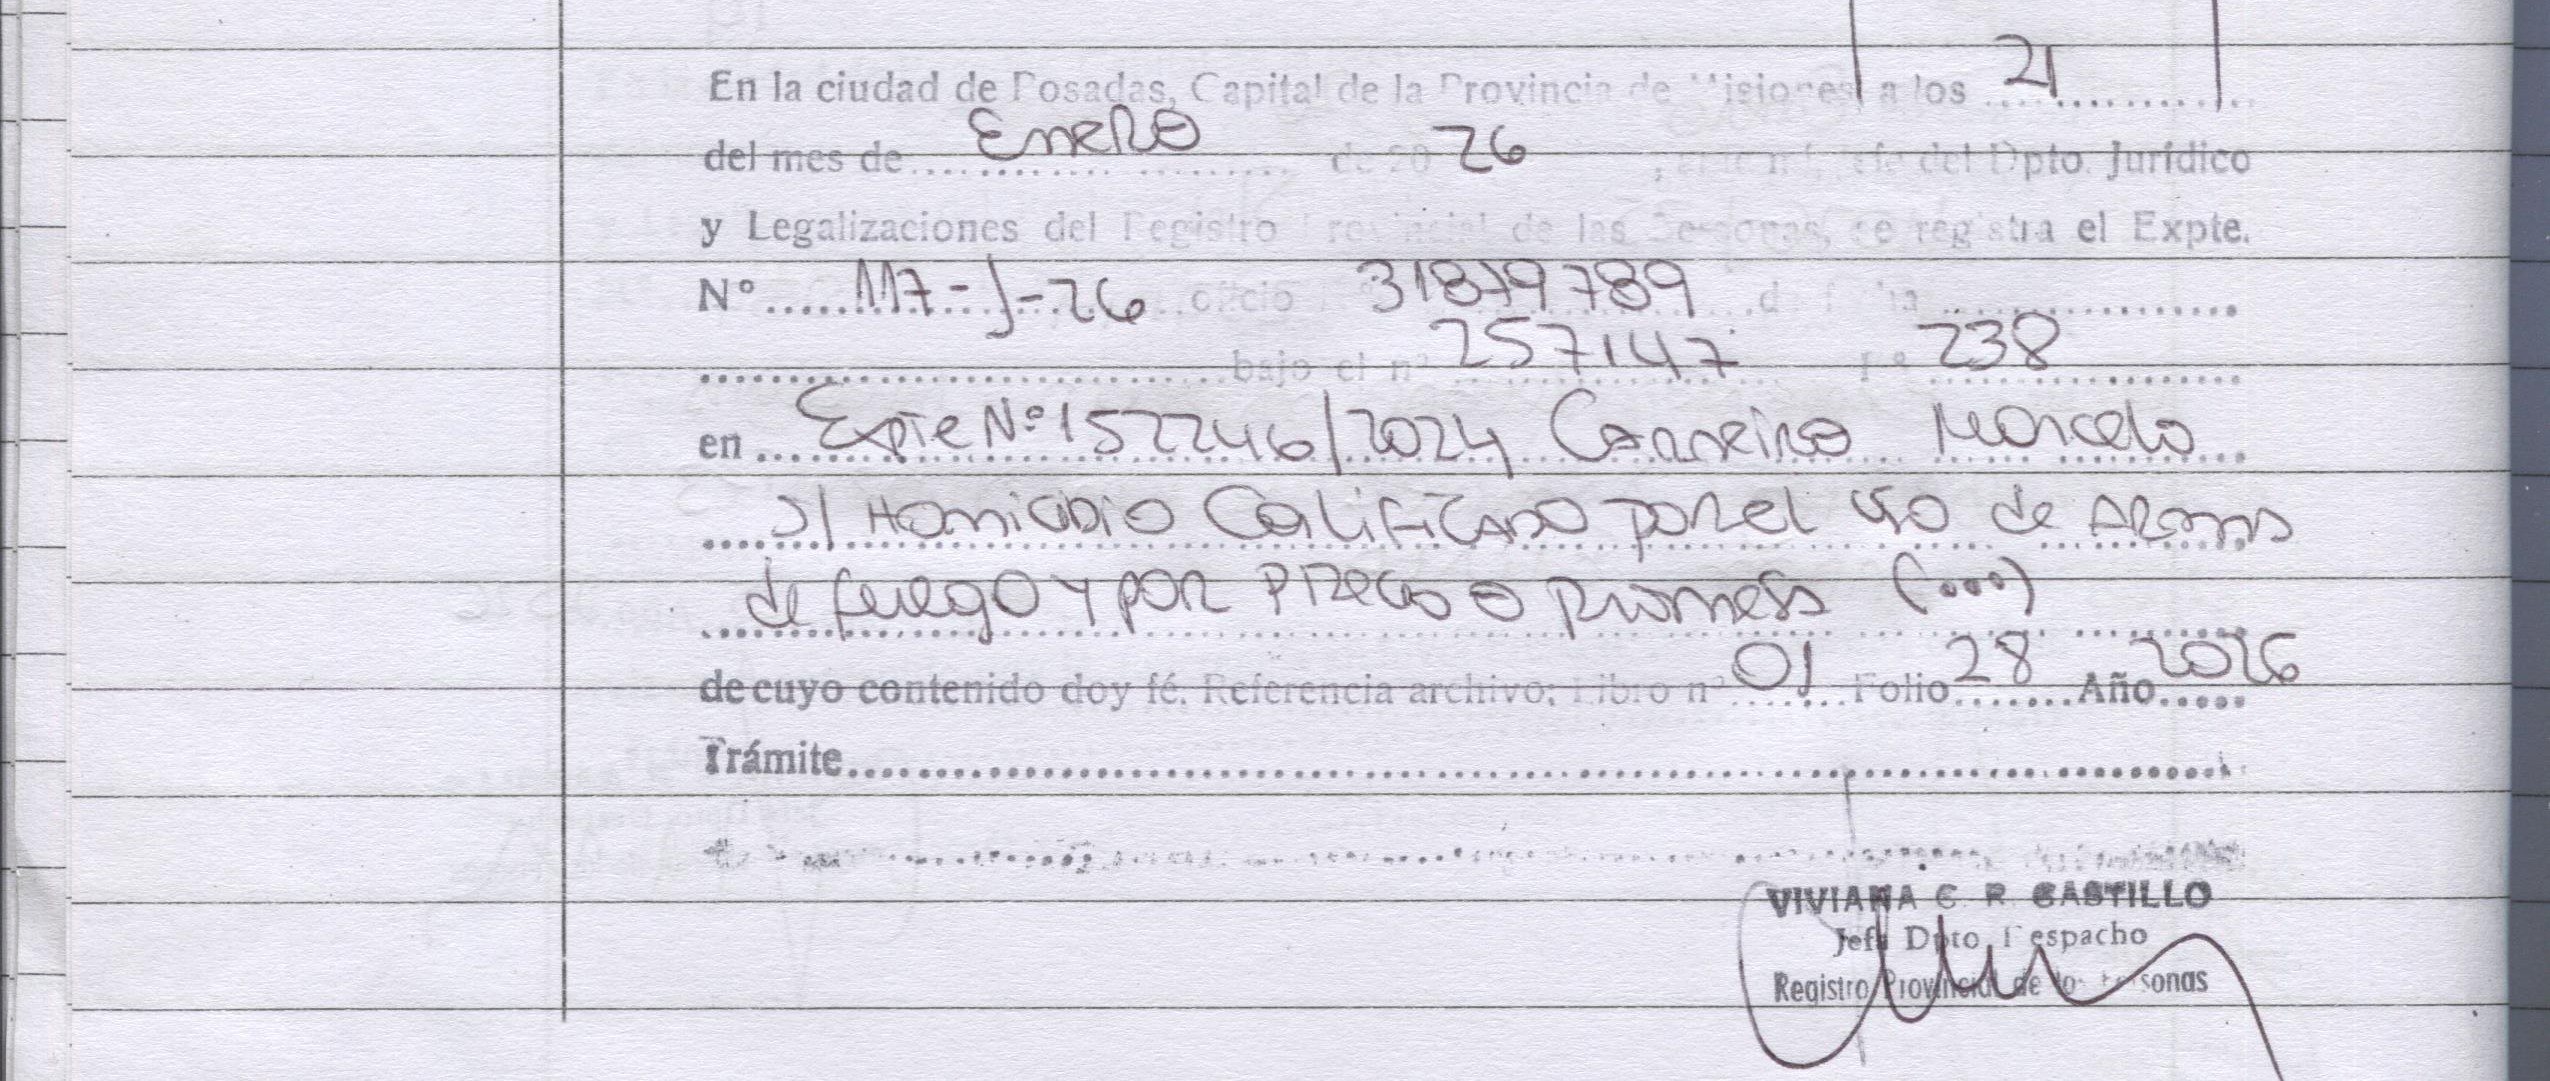 En la ciudad de Posadas, Capital de la Provincia de Misiones, a los 21
del mes de Enero de 20 26 Jefe del Dpto. Jurídico
y Legalizaciones del Registro Provincial de las Personas, se registra el Expte.
Nº 117-J-26 oficio 31879789 de fecha
bajo el nº 257147 Fº 238
en Expte Nº 152246/2024 Carneiro Marcelo
s/ Homicidio Calificado por el uso de Armas
de fuego y por precio o promesa (...)
de cuyo contenido doy fé. Referencia archivo: Libro nº 01 Folio 28 Año 2026
Trámite
VIVIANA C. R. CASTILLO
Jefa Dpto. Despacho
Registro Provincial de las Personas